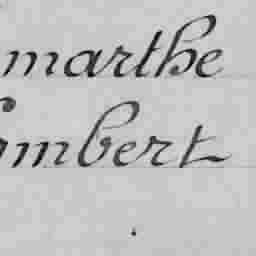 marthe
mbert